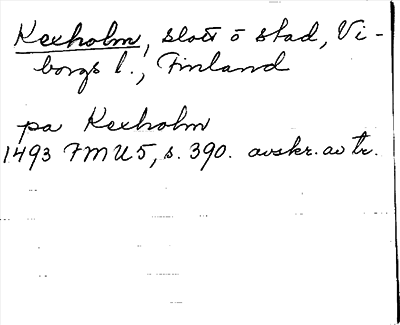 Kexholm, slott o stad, Vi-
borgs l., Finland
pa Kexholm
1493 FMU 5, s. 390. avskr. av tr.